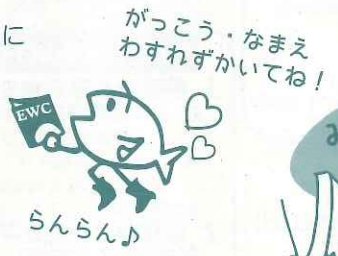 に
がっこう・なまえ
わすれずかいてね！
EWC
らんらん♪